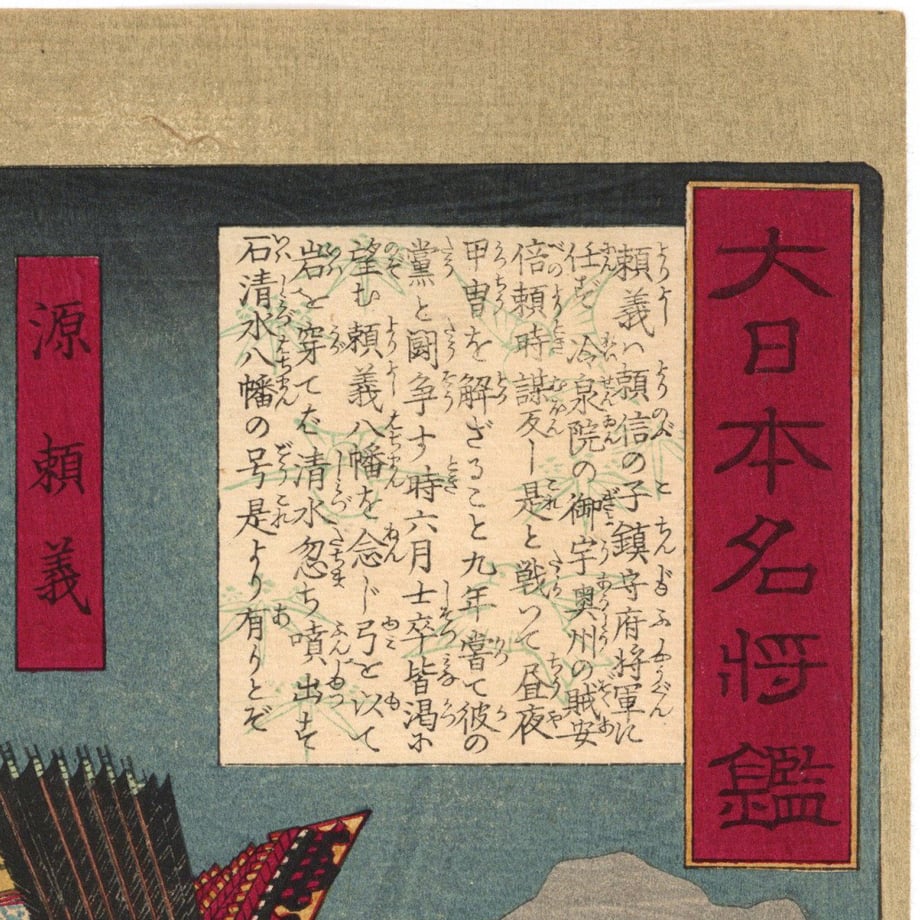 大日本名将鑑
頼義ハ頼信の子鎮守府将軍に
任ず冷泉院の御宇奥州の賊安
倍頼時謀反し是と戦つて昼夜
甲冑を解ざること九年嘗て彼の
黨と闘争す時六月士卒皆渇に
望む頼義八幡を念じ弓を以て
岩を穿てば清水忽ち噴出す
石清水八幡の号是より有りとぞ
源頼義